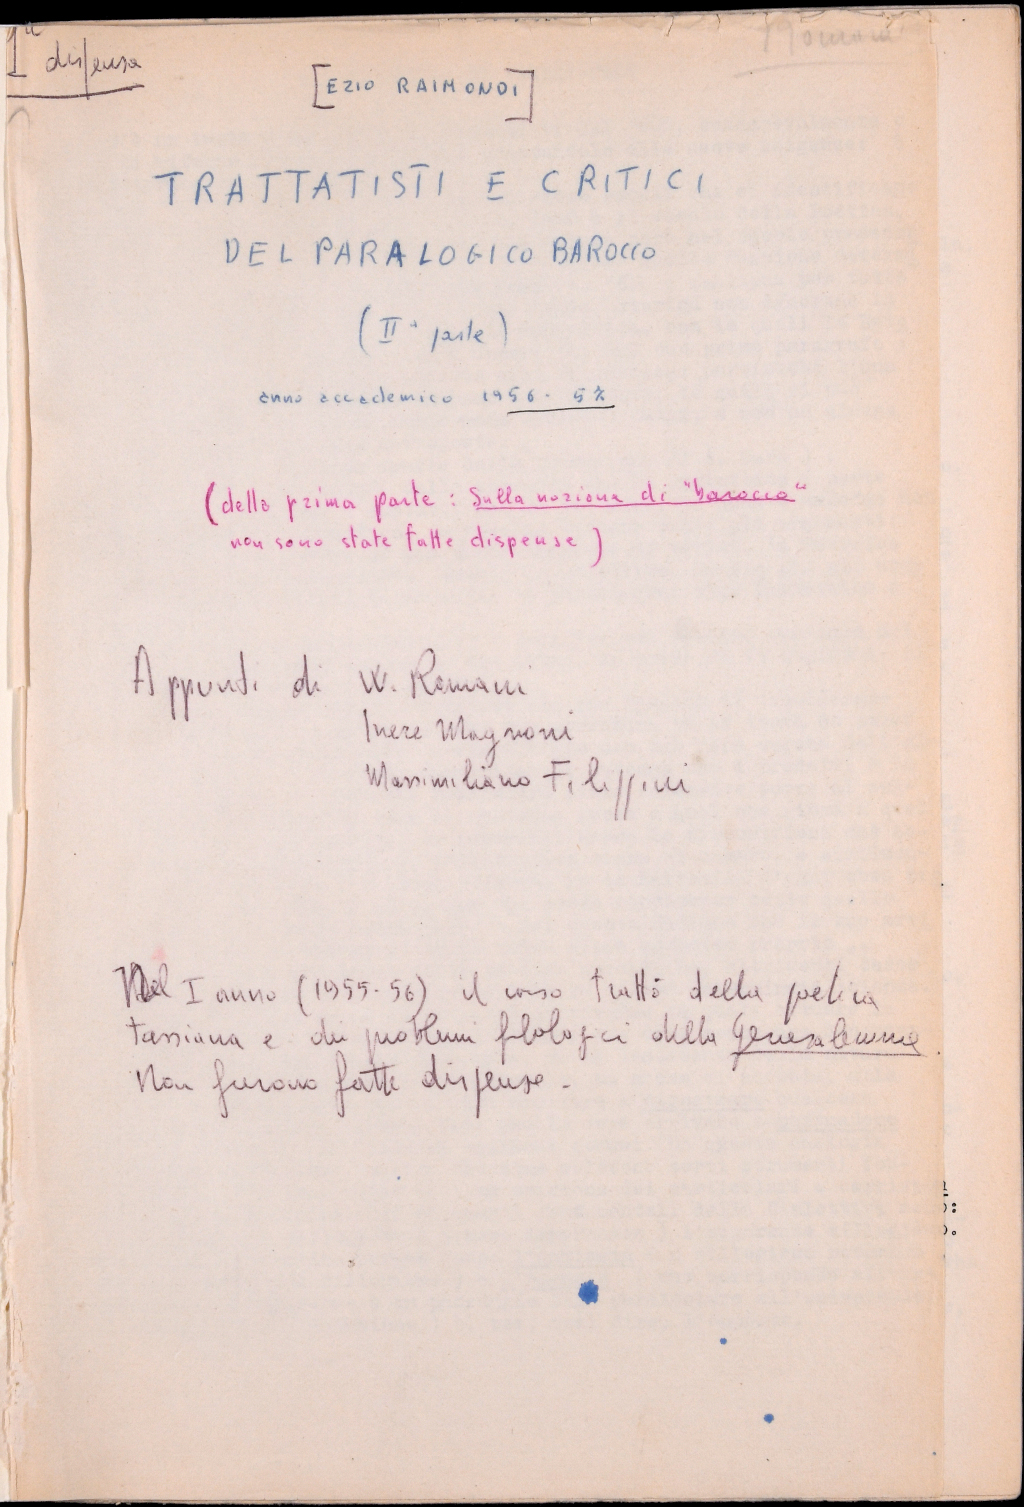 1ª dispensa
[EZIO RAIMONDI]
TRATTATISTI E CRITICI
DEL PARALOGICO BAROCCO
(IIª parte)
anno accademico 1956-57
(della prima parte: Sulla nozione di "barocco"
non sono state fatte dispense)
Appunti di W. Romani
Inere Magnoni
Massimiliano Filippini
Nel I anno (1955-56) il corso trattò della poetica
tassiana e dei problemi filologici della Gerusalemme.
Non furono fatte dispense.